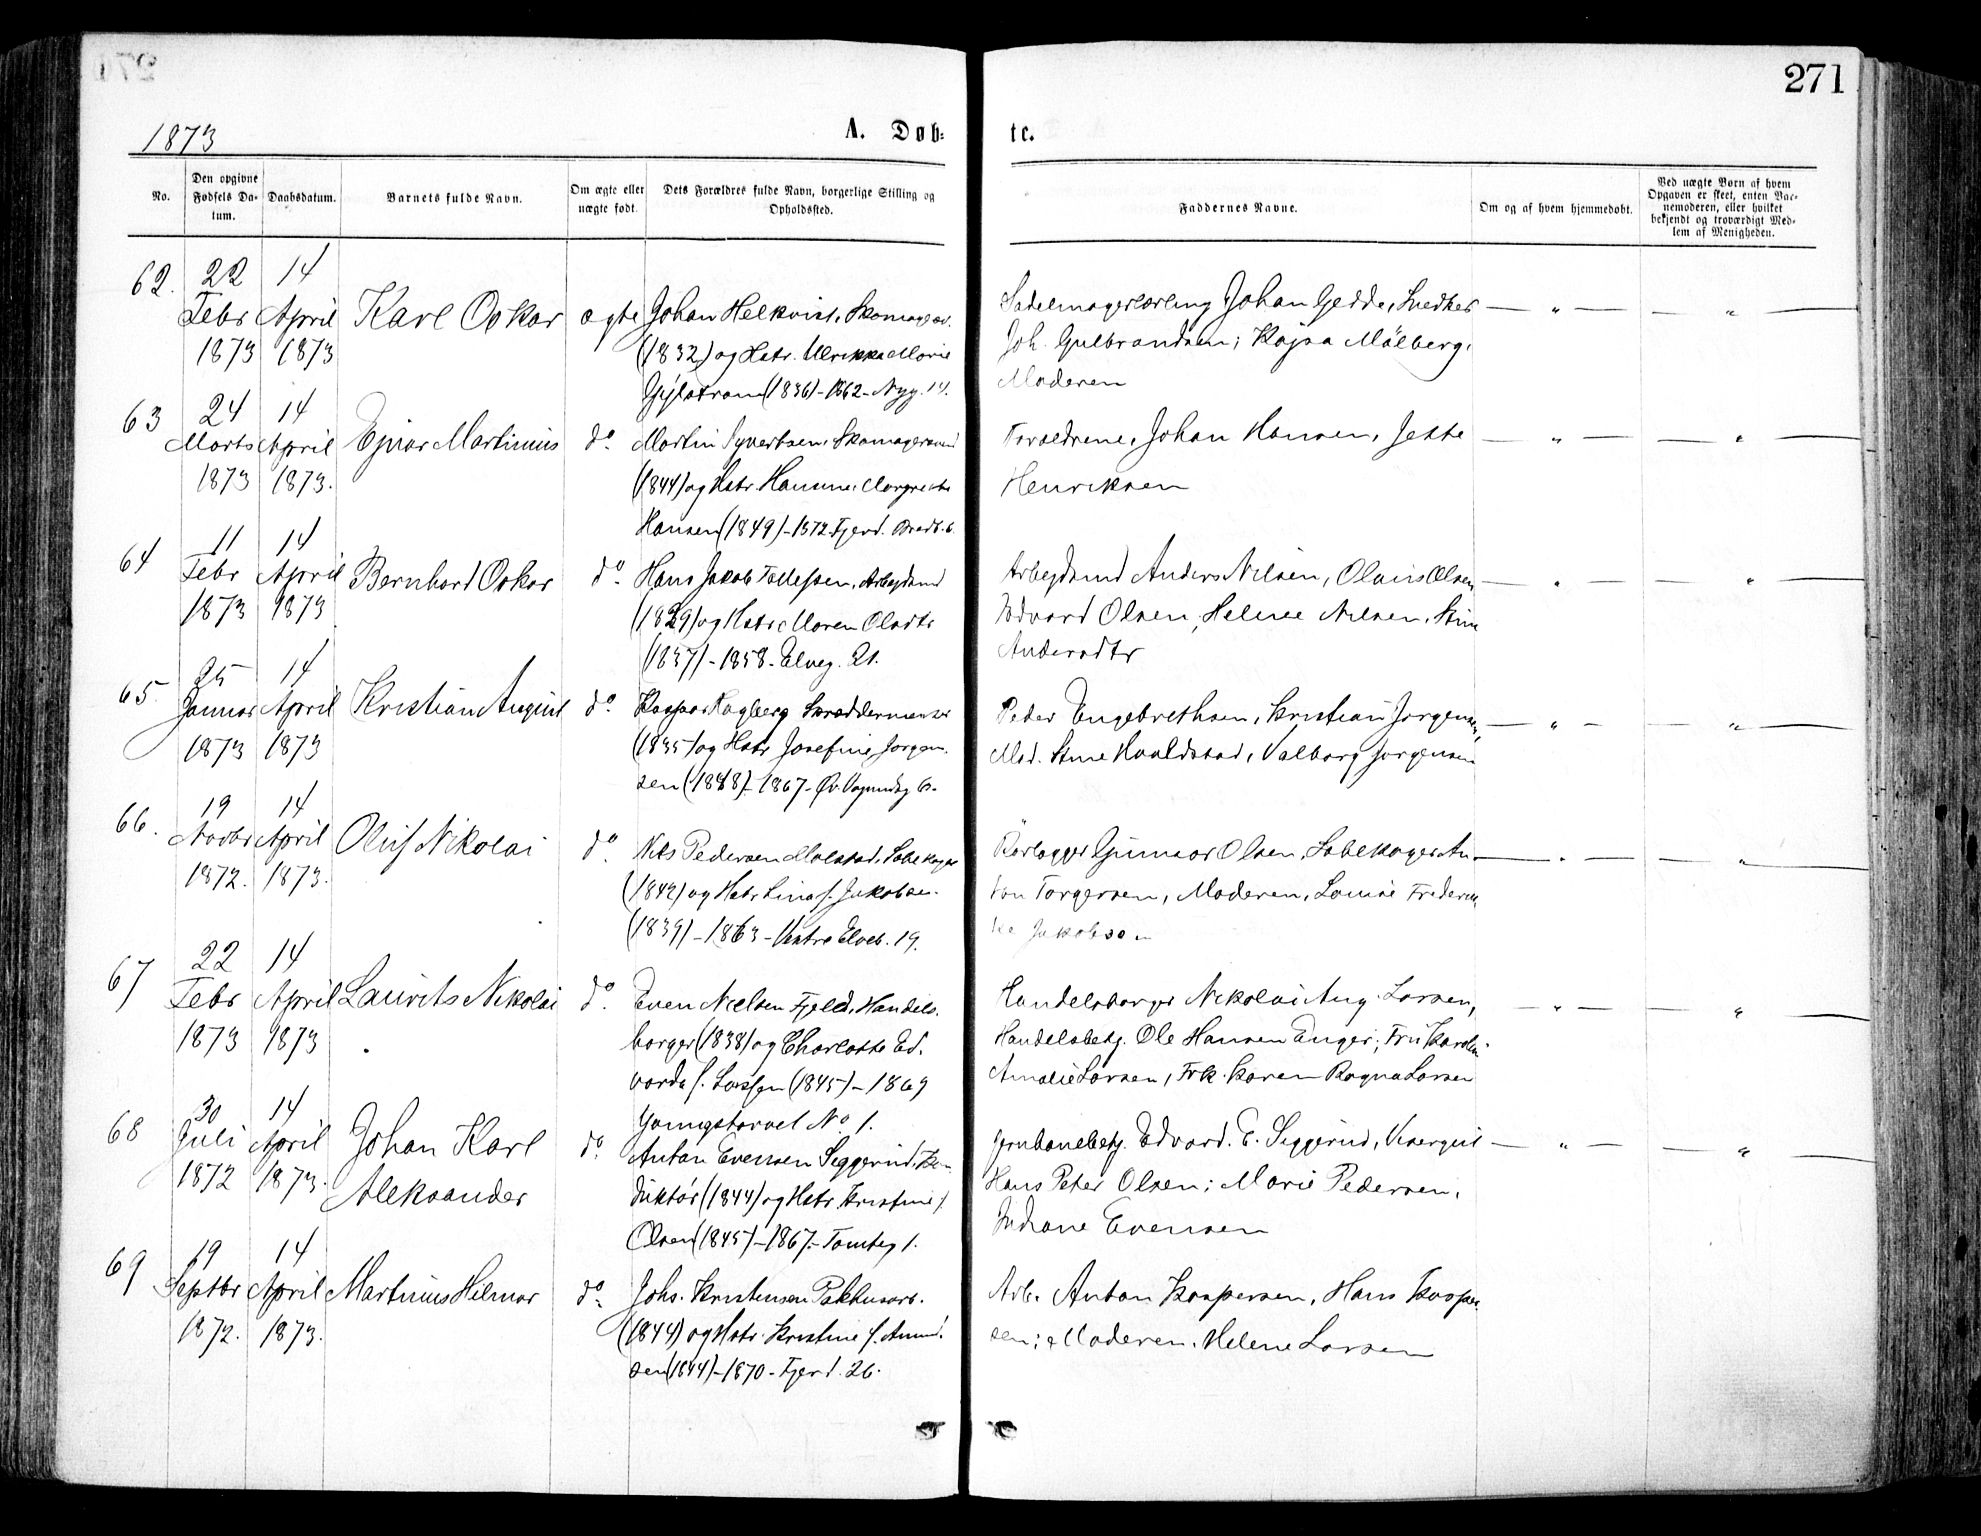 271
1873
A. Døb-
te.
No.
Den opgivne Fødsels Datum.
Daabsdatum.
Barnets fulde Navn.
Om ægte eller uægte født.
Dets Forældres fulde Navn, borgerlige Stilling og Opholdssted.
Faddernes Navne.
Om og af hvem hjemmedøbt.
Ved uægte Børn af hvem Opgaven er skeet, enten Barnemoderen, eller hvilket bekjendt og troværdigt Medlem af Menigheden.
62.
22 Febr 1873
14 April 1873
Karl Oskar
ægte
Johan Helkvist, Skomager.
(1832) og Hstr. Ulrikka Marie
(1836) - 1862 - Nyg. 14.
Sadelmagerlærling Johan Gedde, Snedker
Joh. Gulbrandsen; Kajsa Mälberg,
Moderen
63
24 Marts 1873
14 April 1873.
Ejnar Martinius
do.
Martin Syvertsen, Skomagersvend
(1844) og Hstr. Hansine Margrete
Hansen (1849) - 1872. Fjerd. Bredb. 6.
Forældrene, Johan Hansen, Jette
Henriksen
64
11 Febr 1873
14 April 1873
Bernhard Oskar
do.
Hans Jakob Tollefsen, Arbejdsmd
(1829) og Hstr Maren Olsdtr
(1837) - 1858 - Elveg. 21.
Arbejdsmd Anders Nilsen, Olaus Olsen
Edvard Olsen, Helene Nilsen, Stine
Andersdtr
65.
25 Januar 1873
14 April 1873
Kristian August
do.
Kaspar Hagberg Skræddermester
(1835) og Hstr Josefine Jørgen-
sen (1848) - 1867 - Øv. Vognmdsg 6.
Peder Engebrethsen, Kristian Jørgensen,
Mad. Stine Haaldstad, Valborg Jørgensen
66.
19 Novbr 1872.
14 April 1873.
Oluf Nikolai
do.
Nils Pedersen Molstad, Sæbekoger
(1842) og Hstr Lina f. Jakobsen
(1839) - 1863 - Vestre Elveb. 19.
Rørlægger Gunnar Olsen, Sæbekoger An-
ton Torgersen, Moderen, Louise Frederik-
ke Jakobsen
67
22 Febr 1873
14 April 1873
Laurits Nikolai
do.
Even Nielsen Fjeld, Handels-
borger (1838) og Charlotte Ed-
varda f. Larssen (1845) - 1869
Youngstorvet No 1.
Handelsborger Nikolai Aug. Larsen,
Handelsbetj. Ole Hansen Enger; Fru Karoline
Amalie Larsen, Frk. Karen Ragna Larsen
68
30 Juli 1872
14 April 1873.
Johan Karl
Aleksander
do.
Anton Evensen Seggerud, Kon-
duktør (1844) og Hstr. Kristine f.
Olsen (1845) - 1867. - Tomteg 1.
Jernbanebetj. Edvard. E. Seggerud, Visergut
Hans Peter Olsen; Marie Pedersen,
Indiane Evensen
69
19 Septbr 1872.
14 April 1873.
Martinius Hilmar
do.
Johs. Kristensen Pakhusarb.
(1844) og Hstr. Kristine f. Amund-
sen (1844) - 1870 - Fjerd. 26.
Arb. Anton Kaspersen, Hans Kasper-
sen; Moderen, Helene Larsen